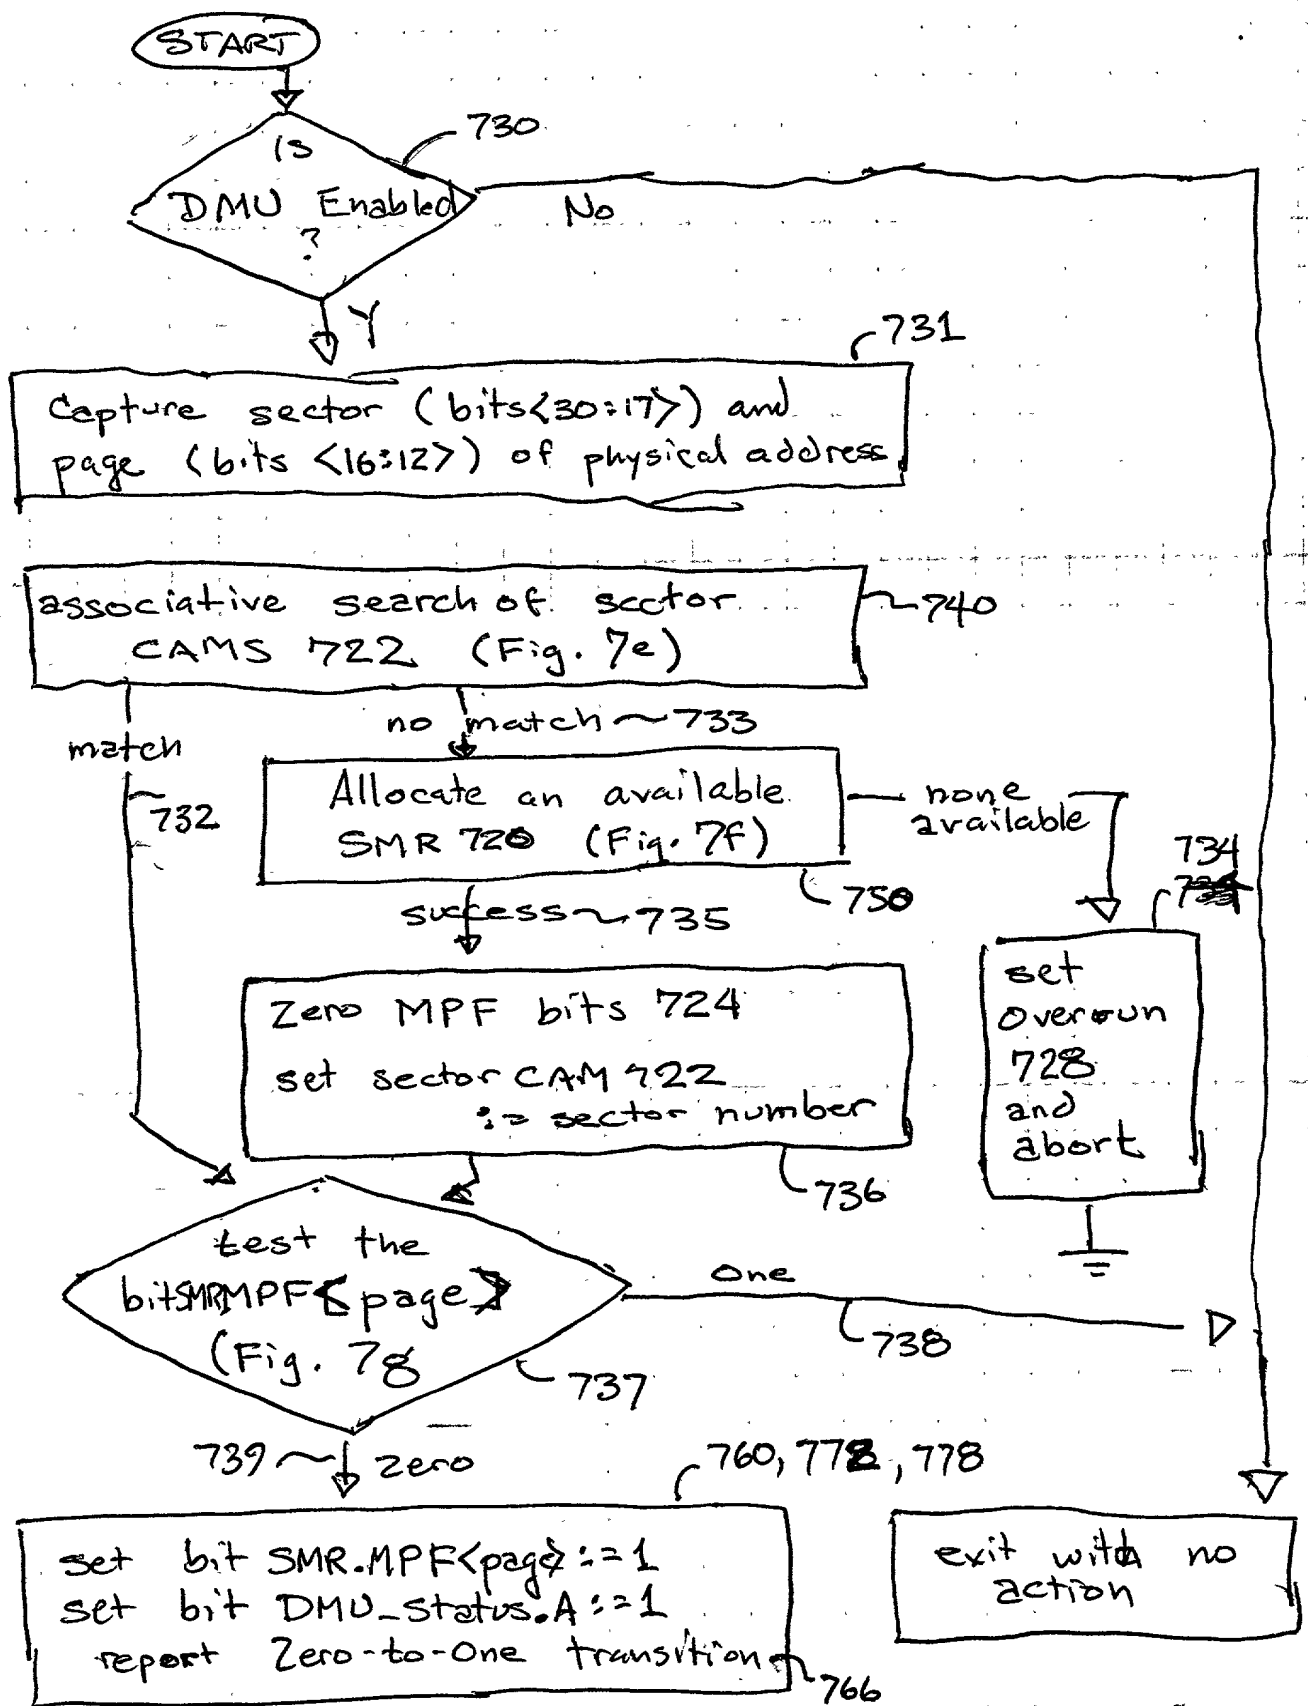 START
730
is
DMU Enabled
?
No
Y
731
Capture sector (bits<30:17>) and
page (bits <16:12>) of physical address
associative search of sector
CAMS 722 (Fig. 7e)
740
match
no match
733
732
Allocate an available
SMR 720 (Fig. 7f)
none
available
750
734
success
735
Zero MPF bits 724
set sector CAM 722
:= sector number
736
set
overrun
728
and
abort
test the
bit SMR.MPF<page>
(Fig. 7g
737
One
738
739
zero
760, 772, 778
set bit SMR.MPF<page> :=1
set bit DMU_Status.A :=1
report Zero-to-One transition
766
exit with no
action